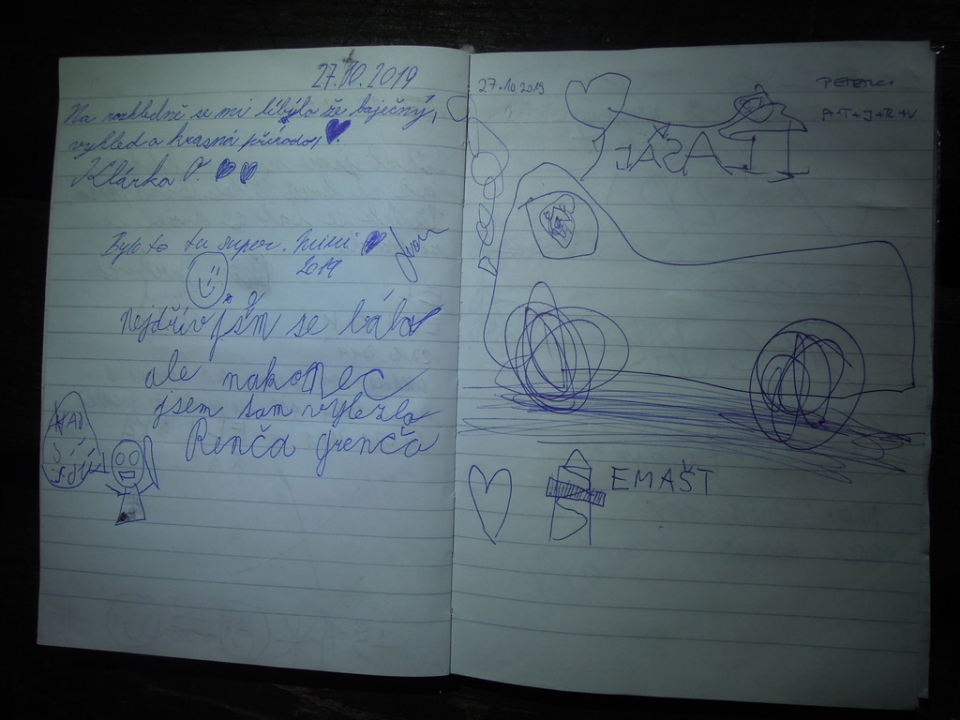 27.10.2019
Na rozhledně se mi líbylo že baječný,
vyhled a krasná přírodo,
Klárka P.
Bylo to tu super. Mimi
2019
Nejdřív jsm se bála
ale nakonec
jsem tam vylezla
Renča grenča
27.10.2019
P+T+J+R+V
EMAŠT